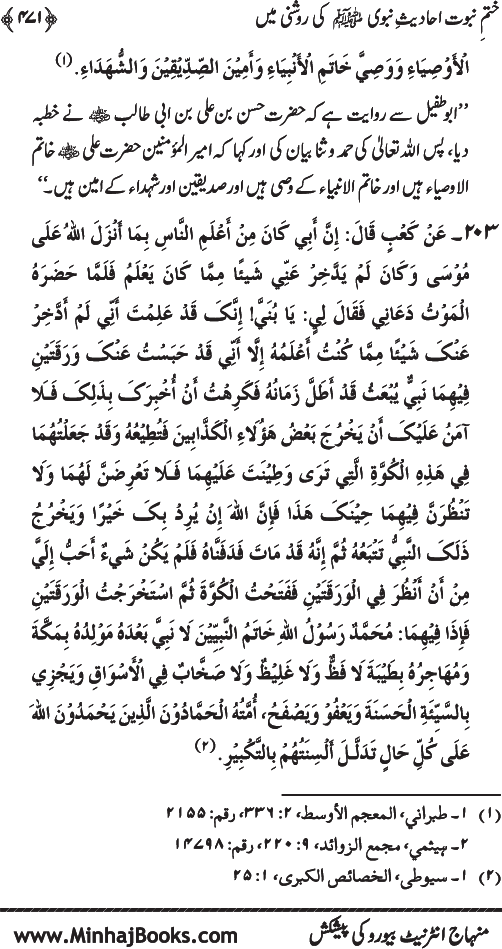 ختمِ نبوت احادیثِ نبوی ﷺ کی روشنی میں ﴿۴۷۱﴾
الْأَوْصِيَاءِ وَوَصِيَّ خَاتَمِ الْأَنْبِيَاءِ وَأَمِيْنَ الصِّدِّيْقِيْنَ وَالشُّهَدَاءِ. (۱)
’’ابوطفیل سے روایت ہے کہ حضرت حسن بن علی بن ابی طالب ﷺ نے خطبہ
دیا، پس اللہ تعالیٰ کی حمد و ثنا بیان کی اور کہا کہ امیر المؤمنین حضرت علی ﷺ خاتم
الاوصیاء ہیں اور خاتم الانبیاء کے وصی ہیں اور صدیقین اور شہداء کے امین ہیں۔‘‘
۲۰۳۔ عَنْ كَعْبٍ قَالَ: إِنَّ أَبِي كَانَ مِنْ أَعْلَمِ النَّاسِ بِمَا أَنْزَلَ اللهُ عَلَى
مُوْسَى وَكَانَ لَمْ يَدَّخِرْ عَنِّي شَيْئًا مِمَّا كَانَ يَعْلَمُ فَلَمَّا حَضَرَهُ
الْمَوْتُ دَعَانِي فَقَالَ لِي: يَا بُنَيَّ! إِنَّکَ قَدْ عَلِمْتَ أَنِّي لَمْ أَدَّخِرْ
عَنْکَ شَيْئًا مِمَّا كُنْتُ أَعْلَمُهُ إِلَّا أَنِّي قَدْ حَبَسْتُ عَنْکَ وَرَقَتَيْنِ
فِيْهِمَا نَبِيٌّ يُبْعَثُ قَدْ أَطَلَّ زَمَانُهُ فَكَرِهْتُ أَنْ أُخْبِرَکَ بِذَلِکَ فَلَا
آمَنُ عَلَيْکَ أَنْ يَخْرُجَ بَعْضُ هَؤُلَاءِ الْكَذَّابِينَ فَتُطِيْعُهُ وَقَدْ جَعَلْتُهُمَا
فِي هَذِهِ الْكُوَّةِ الَّتِي تَرَى وَطِيْنَتَ عَلَيْهِمَا فَلَا تَعْرِضَنَّ لَهُمَا وَلَا
تَنْظُرَنَّ فِيْهِمَا حِيْنَکَ هَذَا فَإِنَّ اللهَ إِنْ يُرِدْ بِکَ خَيْرًا وَيَخْرُجْ
ذَلَکَ النَّبِيُّ تَتْبَعُهُ ثُمَّ إِنَّهُ قَدْ مَاتَ فَدَفَنَّاهُ فَلَمْ يَكُنْ شَيءٌ أَحَبُّ إِلَيَّ
مِنْ أَنْ أَنْظُرَ فِي الْوَرَقَتَيْنِ فَفَتَحْتُ الْكُوَّةَ ثُمَّ اسْتَخْرَجْتُ الْوَرَقَتَيْنِ
فَإِذَا فِيْهِمَا: مُحَمَّدٌ رَسُوْلُ اللهِ خَاتَمُ النَّبِيِّيْنَ لَا نَبِيَّ بَعْدَهُ مَوْلِدُهُ بِمَكَّةَ
وَمُهَاجِرُهُ بِطَيْبَةَ لَا فَظٌّ وَلَا غَلِيْظٌ وَلَا صَخَّابٌ فِي الْأَسْوَاقِ وَيَجْزِي
بِالسَّيِّئَةِ الْحَسَنَةَ وَيَعْفُوْ وَيَصْفَحُ، أُمَّتُهُ الْحَمَّادُوْنَ الَّذِيْنَ يَحْمَدُوْنَ اللهَ
عَلَى كُلِّ حَالٍ تَدَلَّلَ أَلْسِنَتُهُمْ بِالتَّكْبِيْرِ. (۲)
(۱) ۱۔ طبراني، المعجم الأوسط، ۲: ۳۳۶، رقم: ۲۱۵۵
۲۔ هيثمي، مجمع الزوائد، ۹: ۲۲۰، رقم: ۱۴۷۹۸
(۲) ۱۔ سيوطی، الخصائص الكبری، ۱: ۲۵
منہاج انٹرنیٹ بیورو کی پیشکش www.MinhajBooks.com